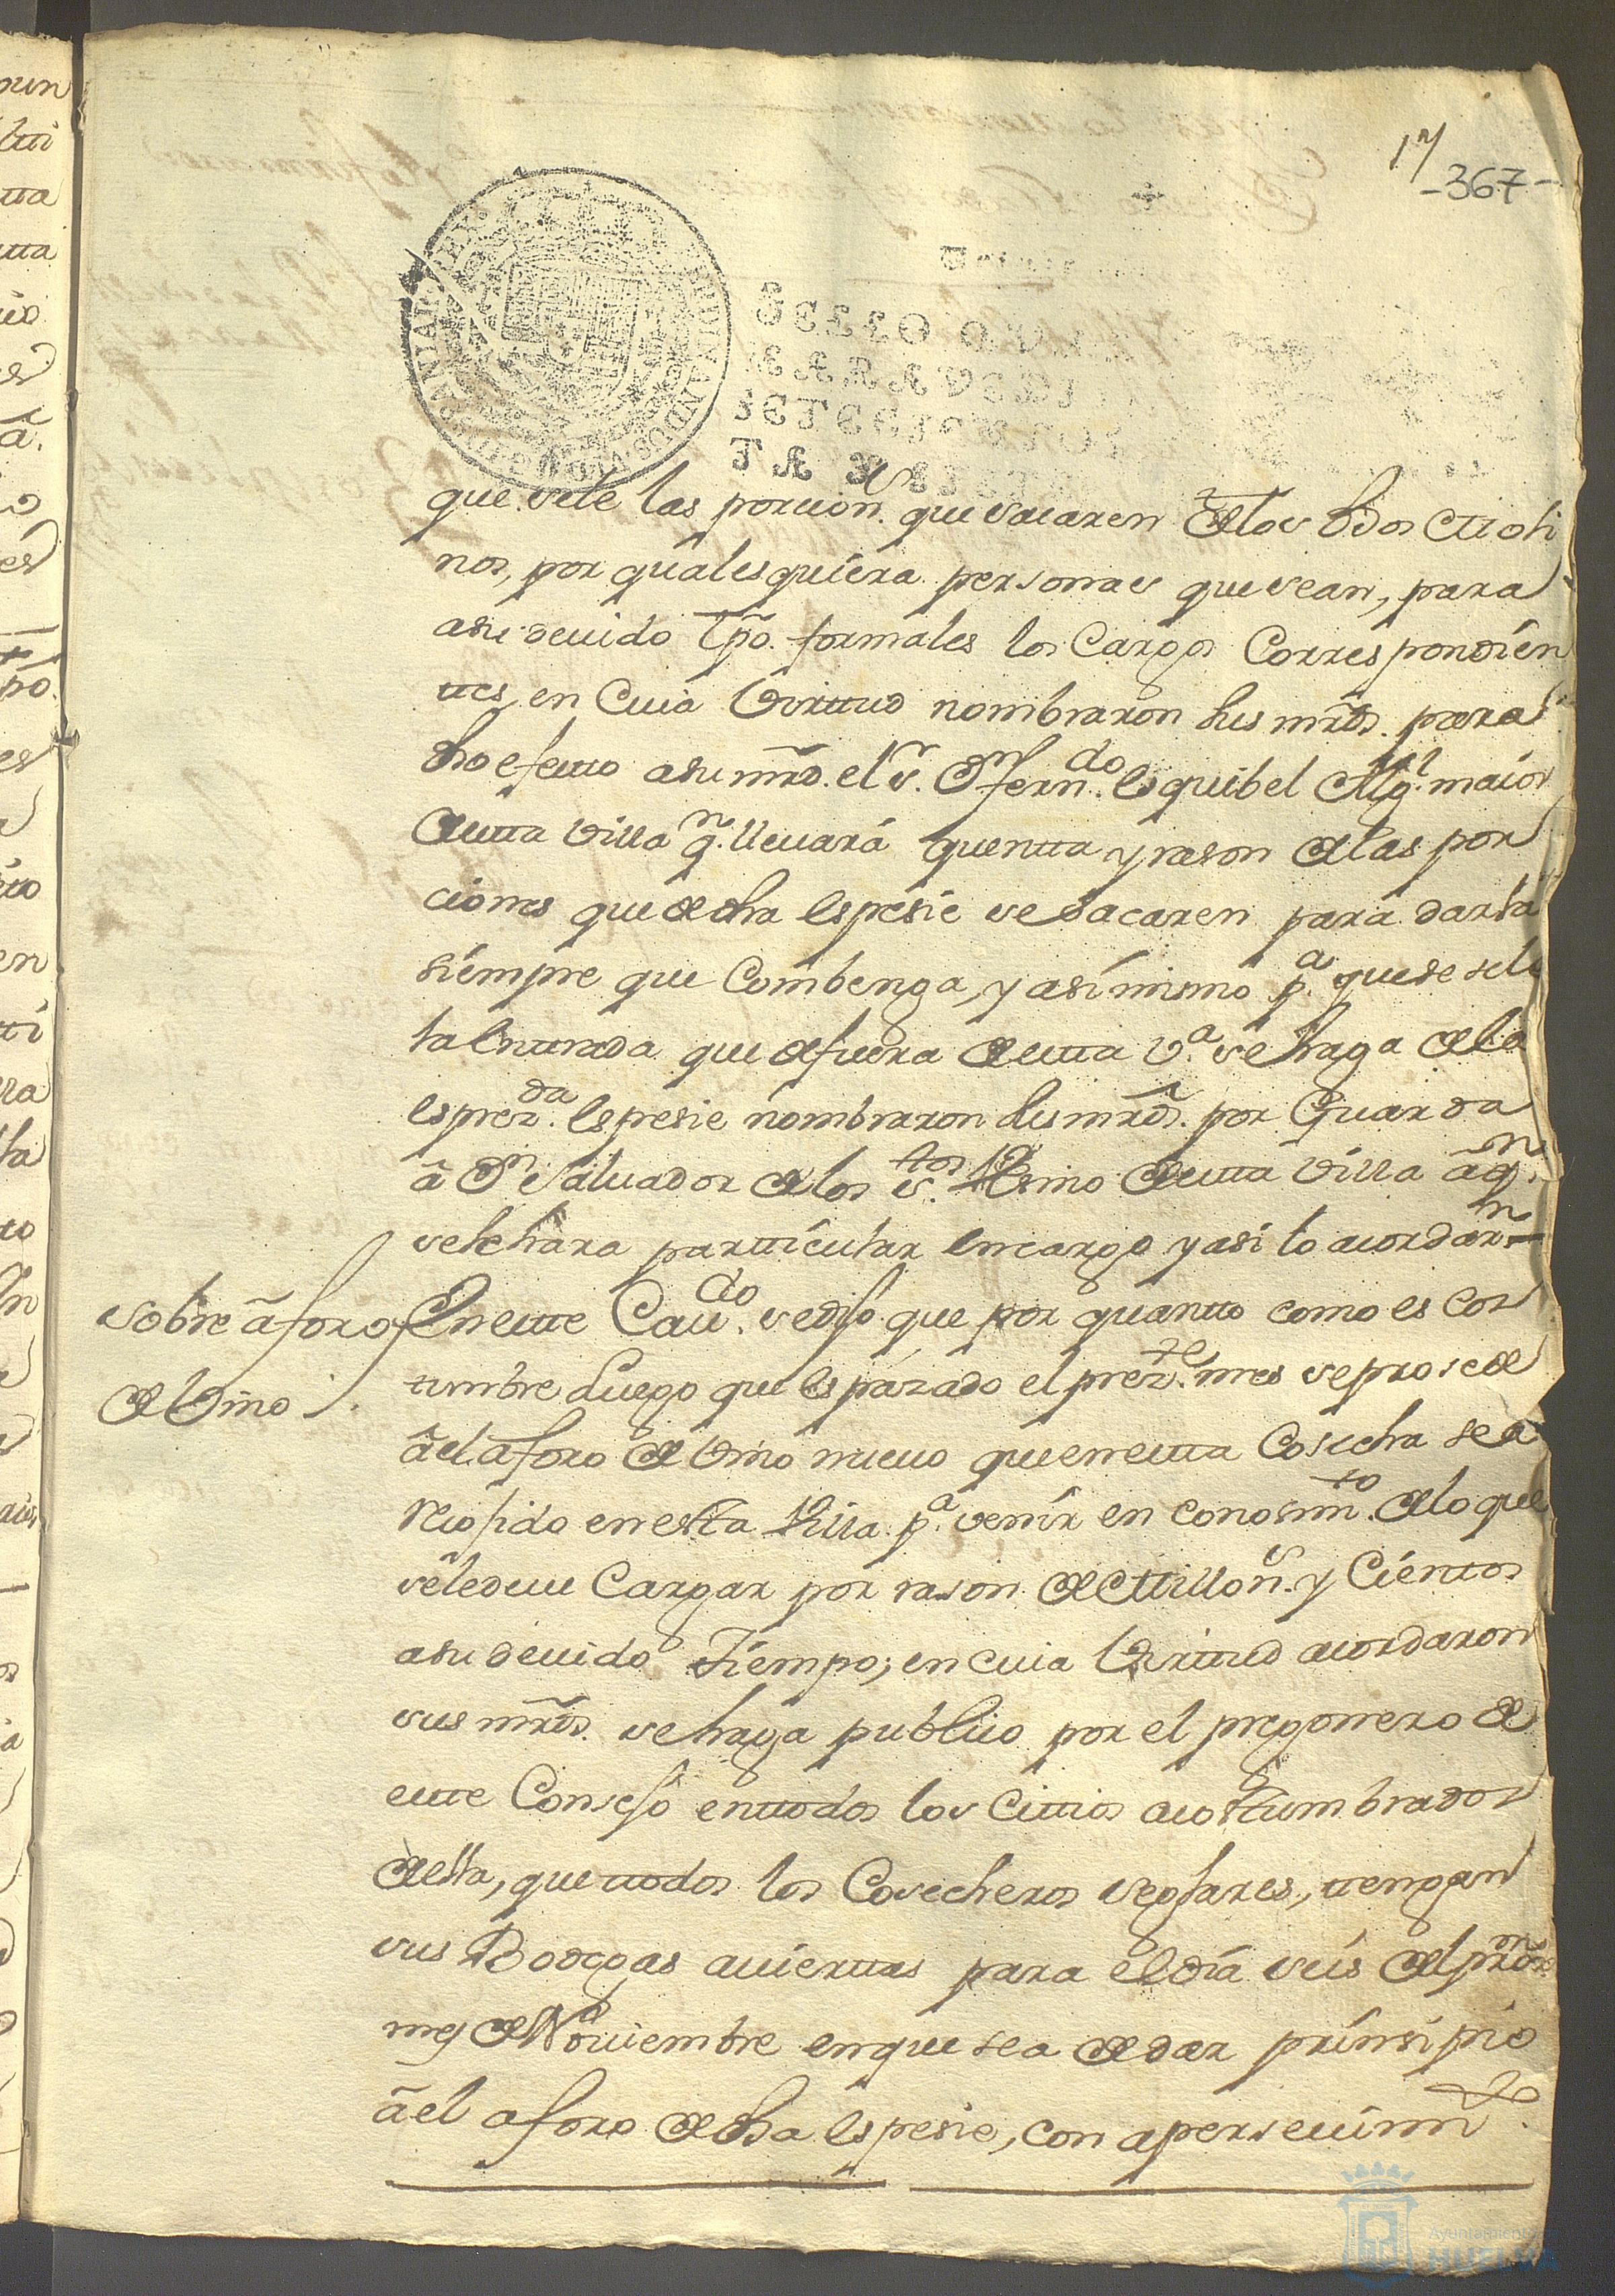 17
-367-
SELLO QVARTO
MARAVEDI
SETECIENTOS
TA
que sele las porcion.s que sacaren de los dhos Moli
nos, por qualesquiera personas que sean, para
asu devido tpō. formales los Cargos Correspondien
ttes, en Cuia Virttud nombraron sus mrds. para
dho efectto asu mrd. el s.r D.n fern.do esquibel Alg.l maior
de estta Villa q.n llevará quentta y rason de las por
ciones que de dha espesie se sacaren para darla
siempre que Combenga, y asimismo p.a que se sele
la enttrada que de fuera de estta v.a se haga de la
esprez.da espesie nombraron sus mrds. por Guarda
â D.n Salvador de los s.tos Vesino de estta Villa â q.n
sele hara partticular encargo y asi lo acordar.n
sobre âforo
de Vino
En estte Cav.do se dijo que por quantto como es cos
tumbre Luego que es pazado el prez.te mes se prosede
â el aforo de Vino nuevo que en estta Cosecha se a
recojido en esta Villa p.a venir en conosim.to de lo que
sele deve Cargar por rason de Millon.s y Cienttos
asu devido Tiempo; en cuia Virttud acordaron
sus mrds. se haga publico por el pregonero de
estte Consejo en ttodos los Cittios acostumbrados
de ella, que ttodos los Cosecheros seglares, ttengan
sus Bodegas aviерttas para el dia seis del prox.mo
mes de Noviembre en que se a de dar prinsipio
â el aforo de dha espesie, con apersevim.to
Ayuntamiento
HUELVA